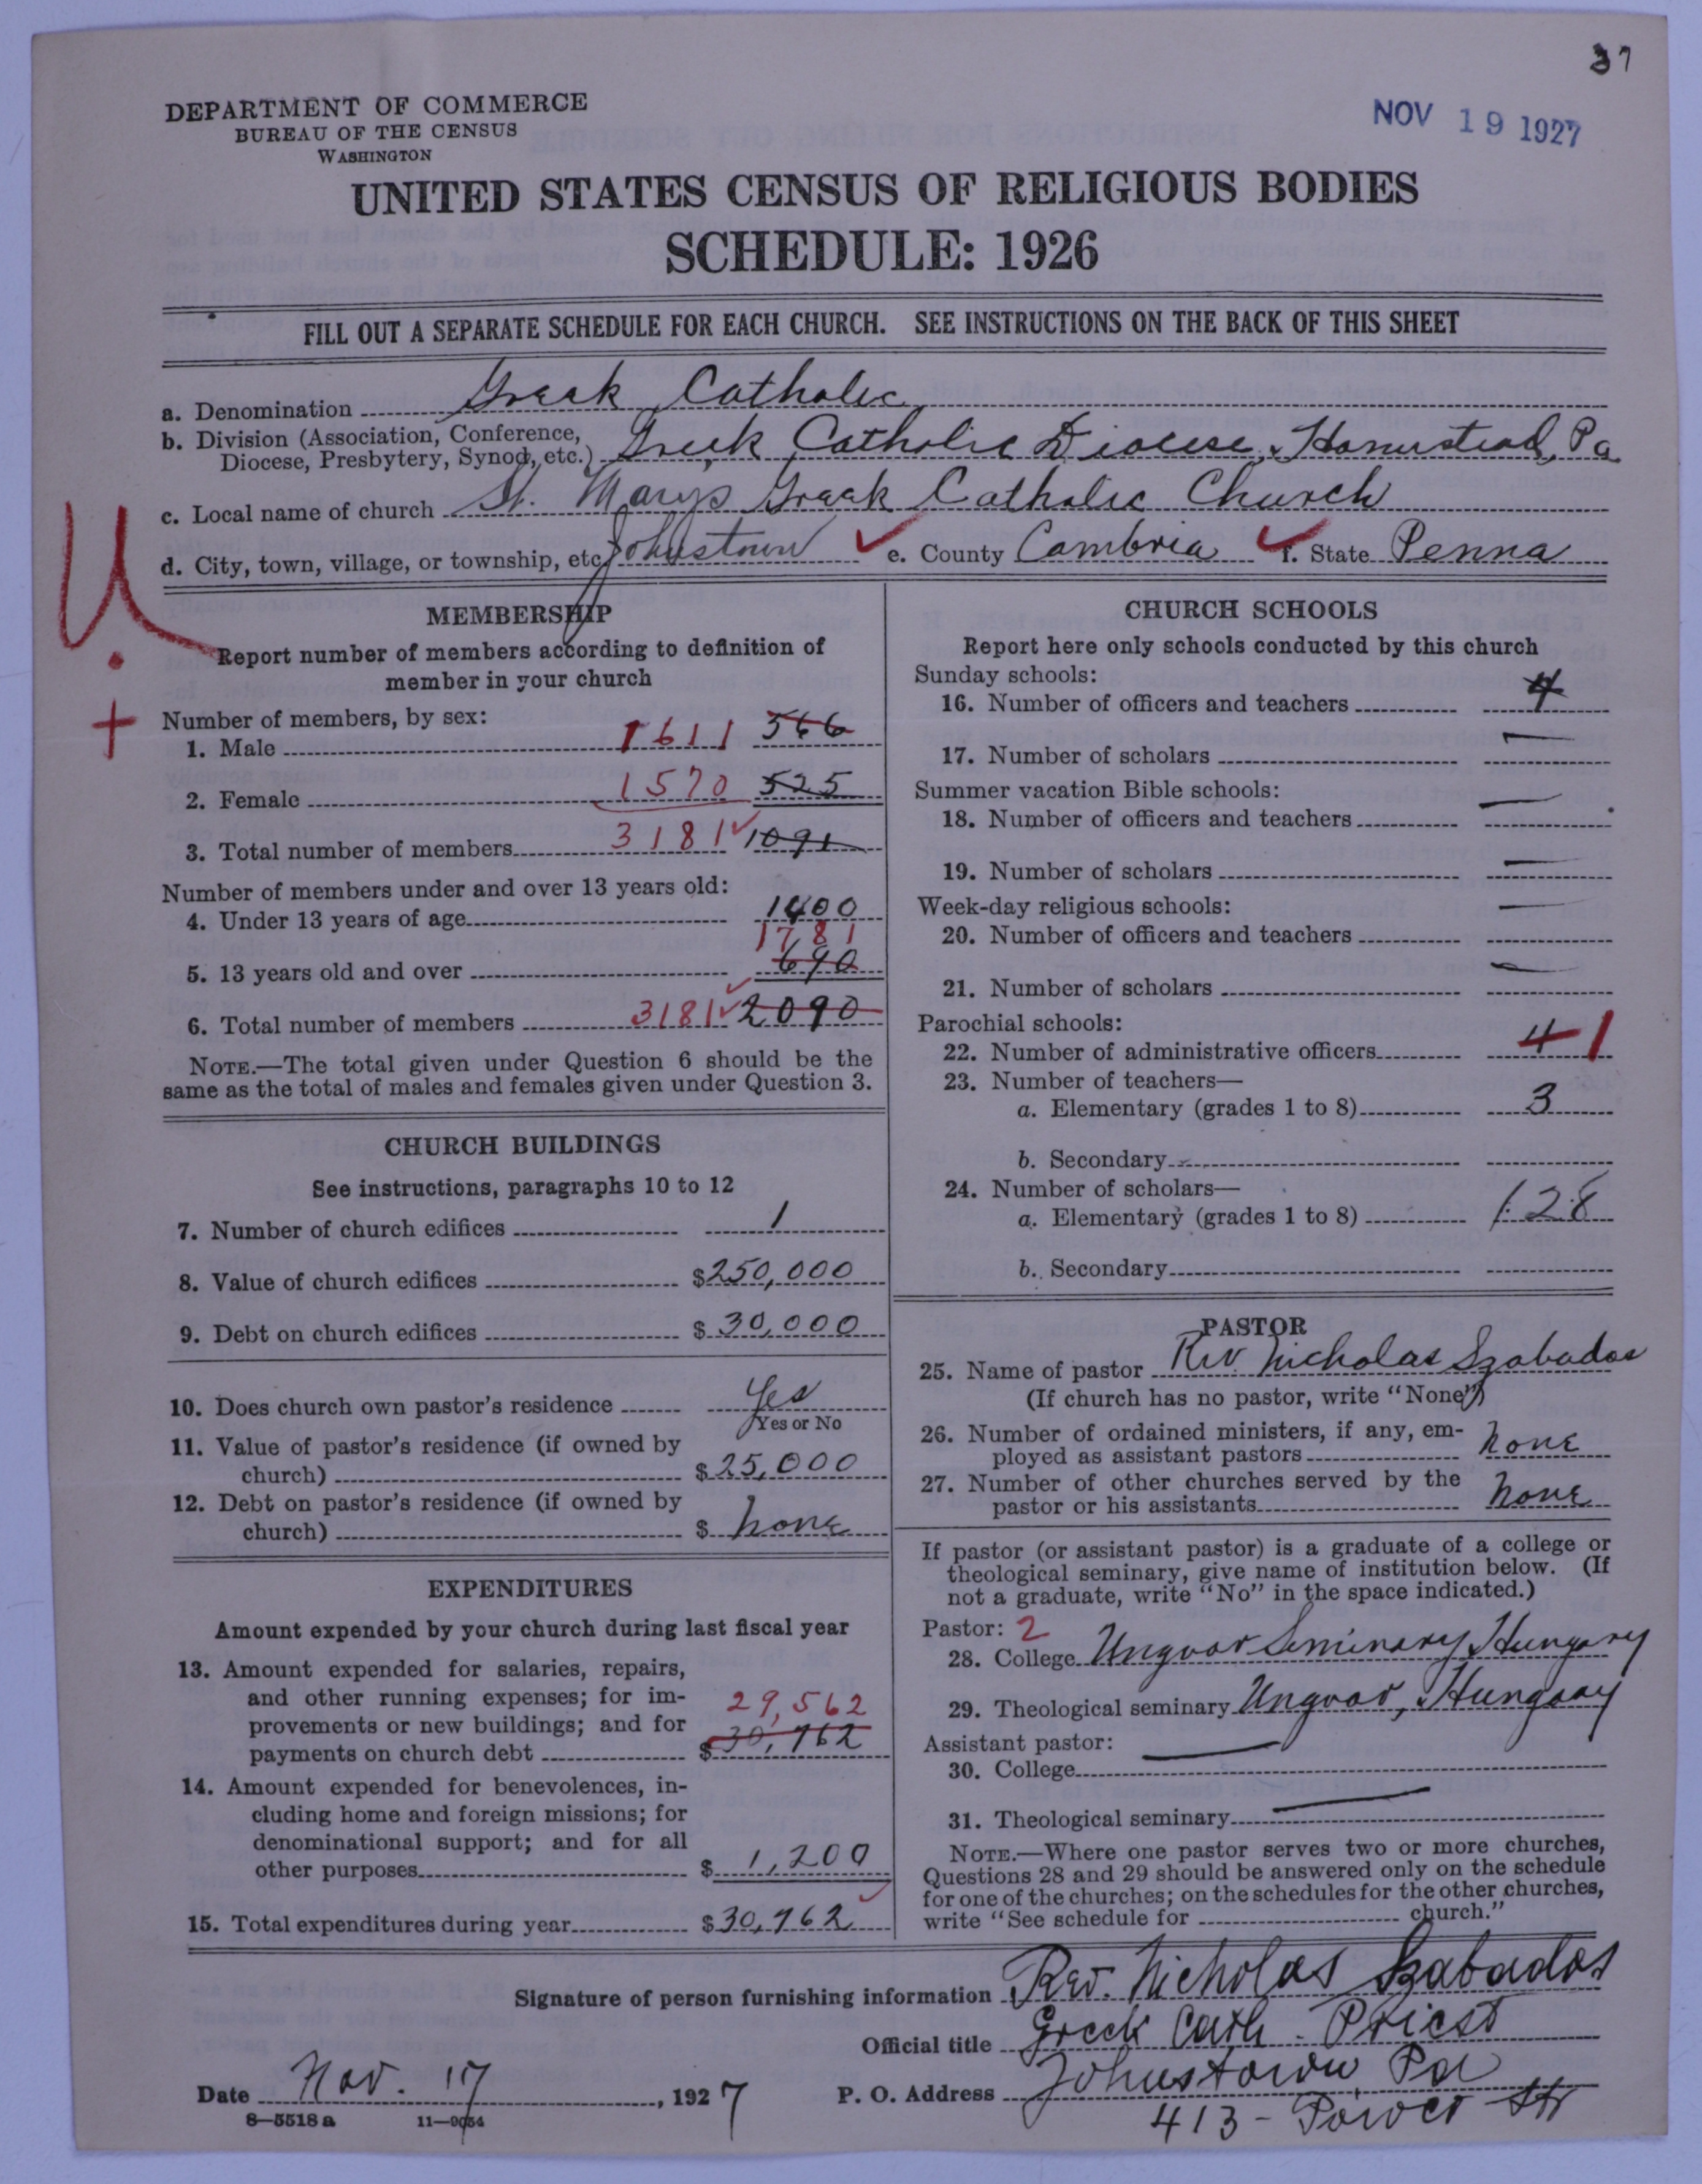 37
NOV 19 1927
DEPARTMENT OF COMMERCE
BUREAU OF THE CENSUS
WASHINGTON
UNITED STATES CENSUS OF RELIGIOUS BODIES
SCHEDULE: 1926
FILL OUT A SEPARATE SCHEDULE FOR EACH CHURCH. SEE INSTRUCTIONS ON THE BACK OF THIS SHEET
a. Denomination Greek Catholic
b. Division (Association, Conference, Diocese, Presbytery, Synod, etc.) Greek Catholic Diocese, Homestead, Pa
c. Local name of church St. Marys Greek Catholic Church
d. City, town, village, or township, etc. Johnstown e. County Cambria f. State Penna
MEMBERSHIP
Report number of members according to definition of
member in your church
Number of members, by sex:
1. Male 1611 566
2. Female 1570 525
3. Total number of members 3181 1091
Number of members under and over 13 years old:
4. Under 13 years of age 1400
1781
5. 13 years old and over 690
6. Total number of members 3181 2090
NOTE.—The total given under Question 6 should be the
same as the total of males and females given under Question 3.
CHURCH BUILDINGS
See instructions, paragraphs 10 to 12
7. Number of church edifices 1
8. Value of church edifices $250,000
9. Debt on church edifices $30,000
10. Does church own pastor's residence Yes
Yes or No
11. Value of pastor's residence (if owned by
church) $25,000
12. Debt on pastor's residence (if owned by
church) $ none
EXPENDITURES
Amount expended by your church during last fiscal year
13. Amount expended for salaries, repairs,
and other running expenses; for im-
provements or new buildings; and for 29,562
payments on church debt $30,762
14. Amount expended for benevolences, in-
cluding home and foreign missions; for
denominational support; and for all
other purposes $1,200
15. Total expenditures during year $30,762
CHURCH SCHOOLS
Report here only schools conducted by this church
Sunday schools:
16. Number of officers and teachers 4
17. Number of scholars —
Summer vacation Bible schools:
18. Number of officers and teachers —
19. Number of scholars —
Week-day religious schools:
20. Number of officers and teachers —
21. Number of scholars —
Parochial schools:
22. Number of administrative officers 4 1
23. Number of teachers—
a. Elementary (grades 1 to 8) 3
b. Secondary
24. Number of scholars—
a. Elementary (grades 1 to 8) 128
b. Secondary
PASTOR
25. Name of pastor Rev. Nicholas Szabados
(If church has no pastor, write "None")
26. Number of ordained ministers, if any, em-
ployed as assistant pastors none
27. Number of other churches served by the
pastor or his assistants none
If pastor (or assistant pastor) is a graduate of a college or
theological seminary, give name of institution below. (If
not a graduate, write "No" in the space indicated.)
Pastor: 2
28. College Ungvar Seminary, Hungary
29. Theological seminary Ungvar, Hungary
Assistant pastor:
30. College —
31. Theological seminary —
NOTE.—Where one pastor serves two or more churches,
Questions 28 and 29 should be answered only on the schedule
for one of the churches; on the schedules for the other churches,
write "See schedule for church."
Signature of person furnishing information Rev. Nicholas Szabados
Official title Greek Cath. Priest
Date Nov. 17, 1927 P. O. Address Johnstown Pa
413 - Power Str
8—5518 a 11—9054